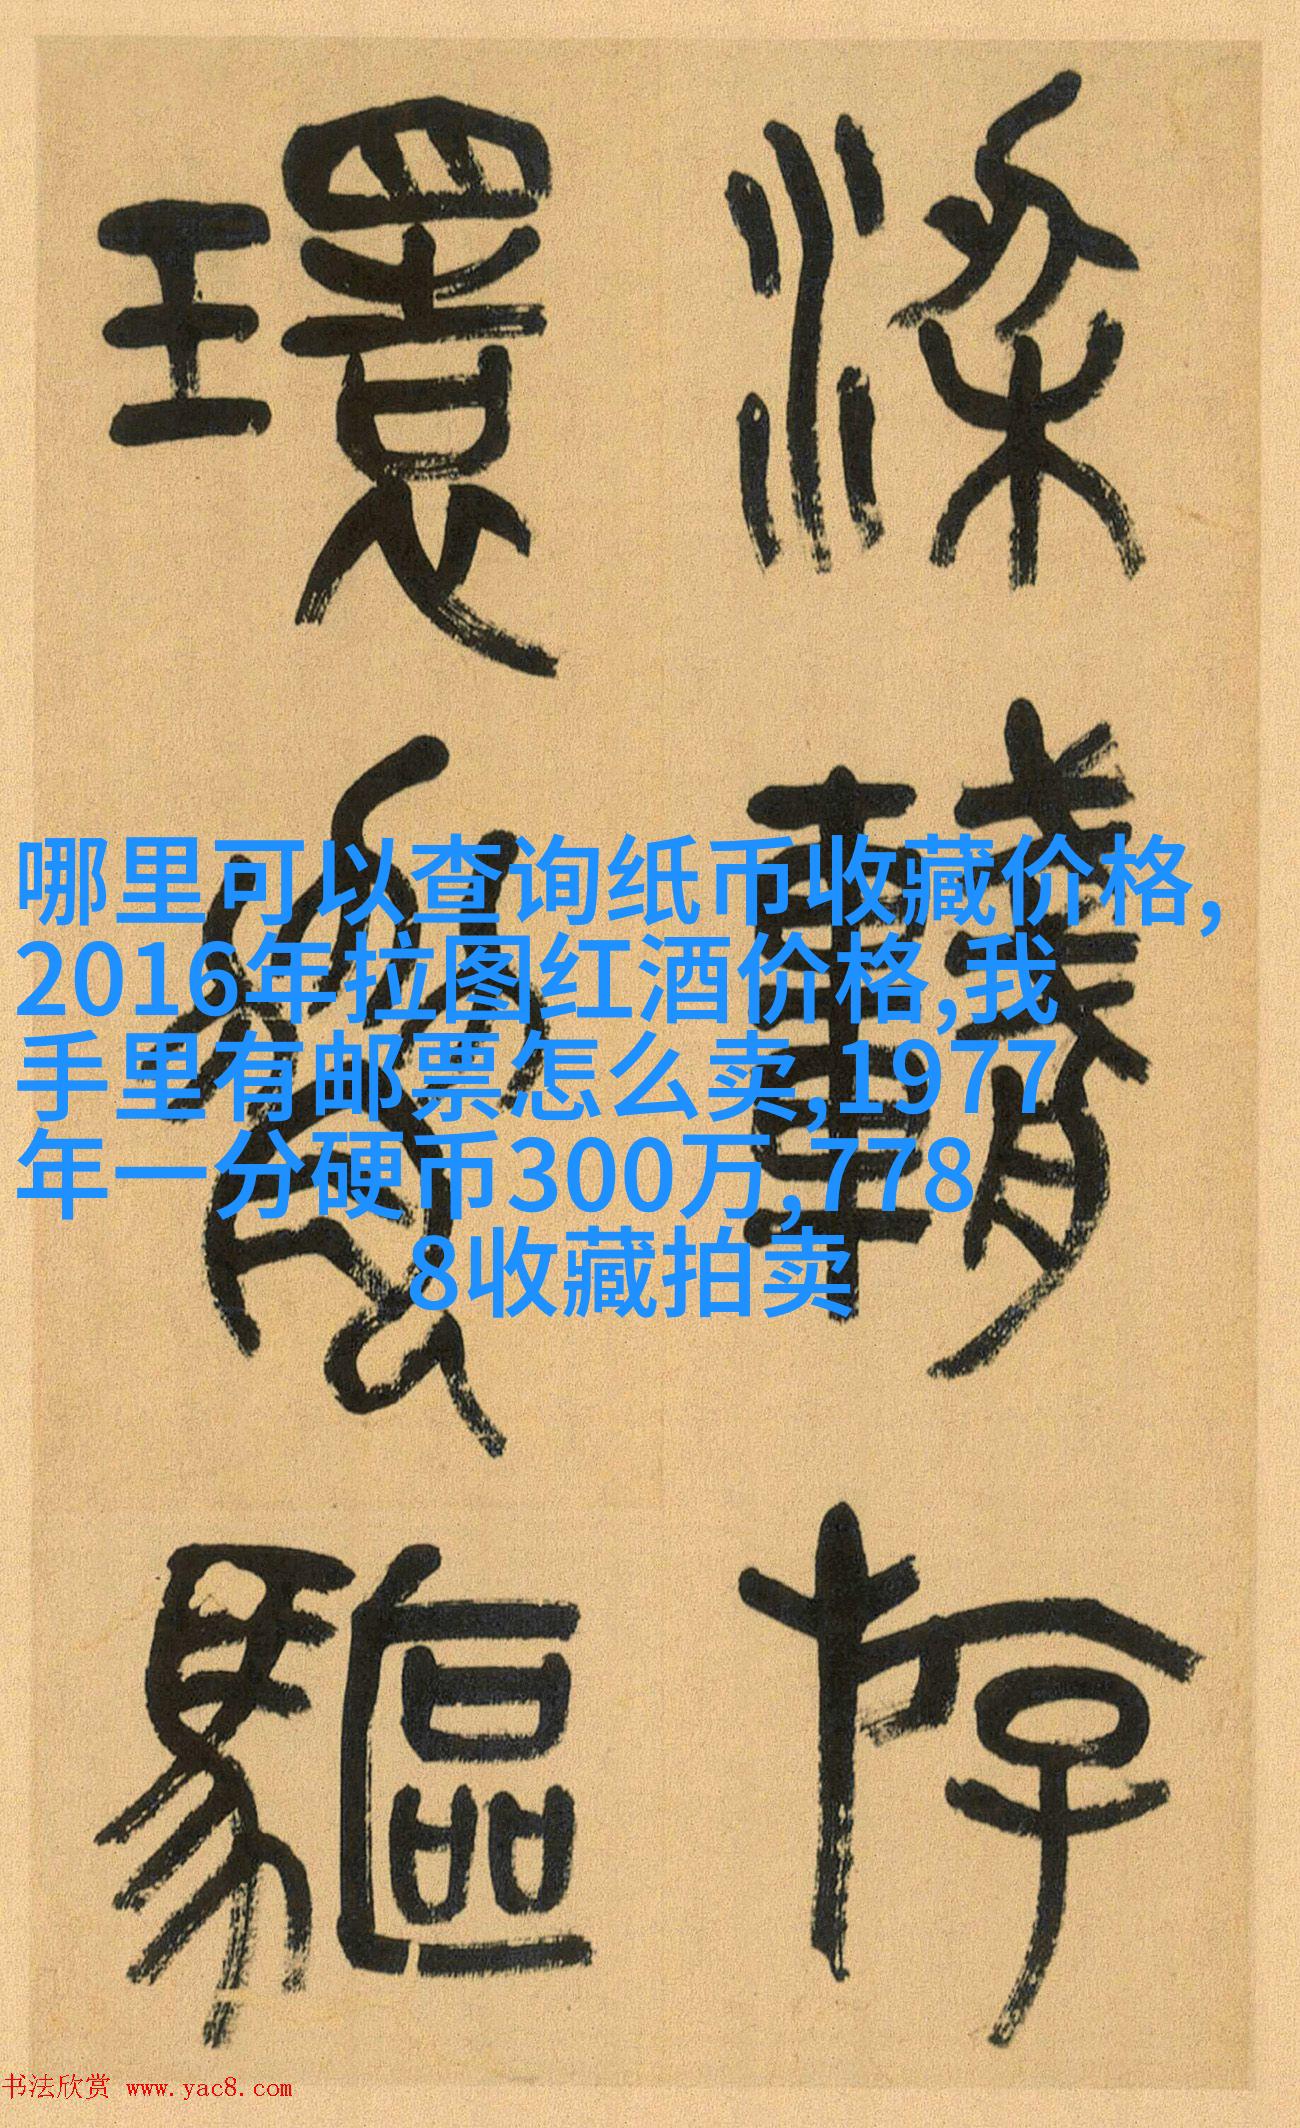 梁輈斿
環脅驅
哪里可以查询纸币收藏价格,
2016年拉图红酒价格,我
手里有邮票怎么卖,1977
年一分硬币300万,778
8收藏拍卖
书法欣赏 www.yac8.com